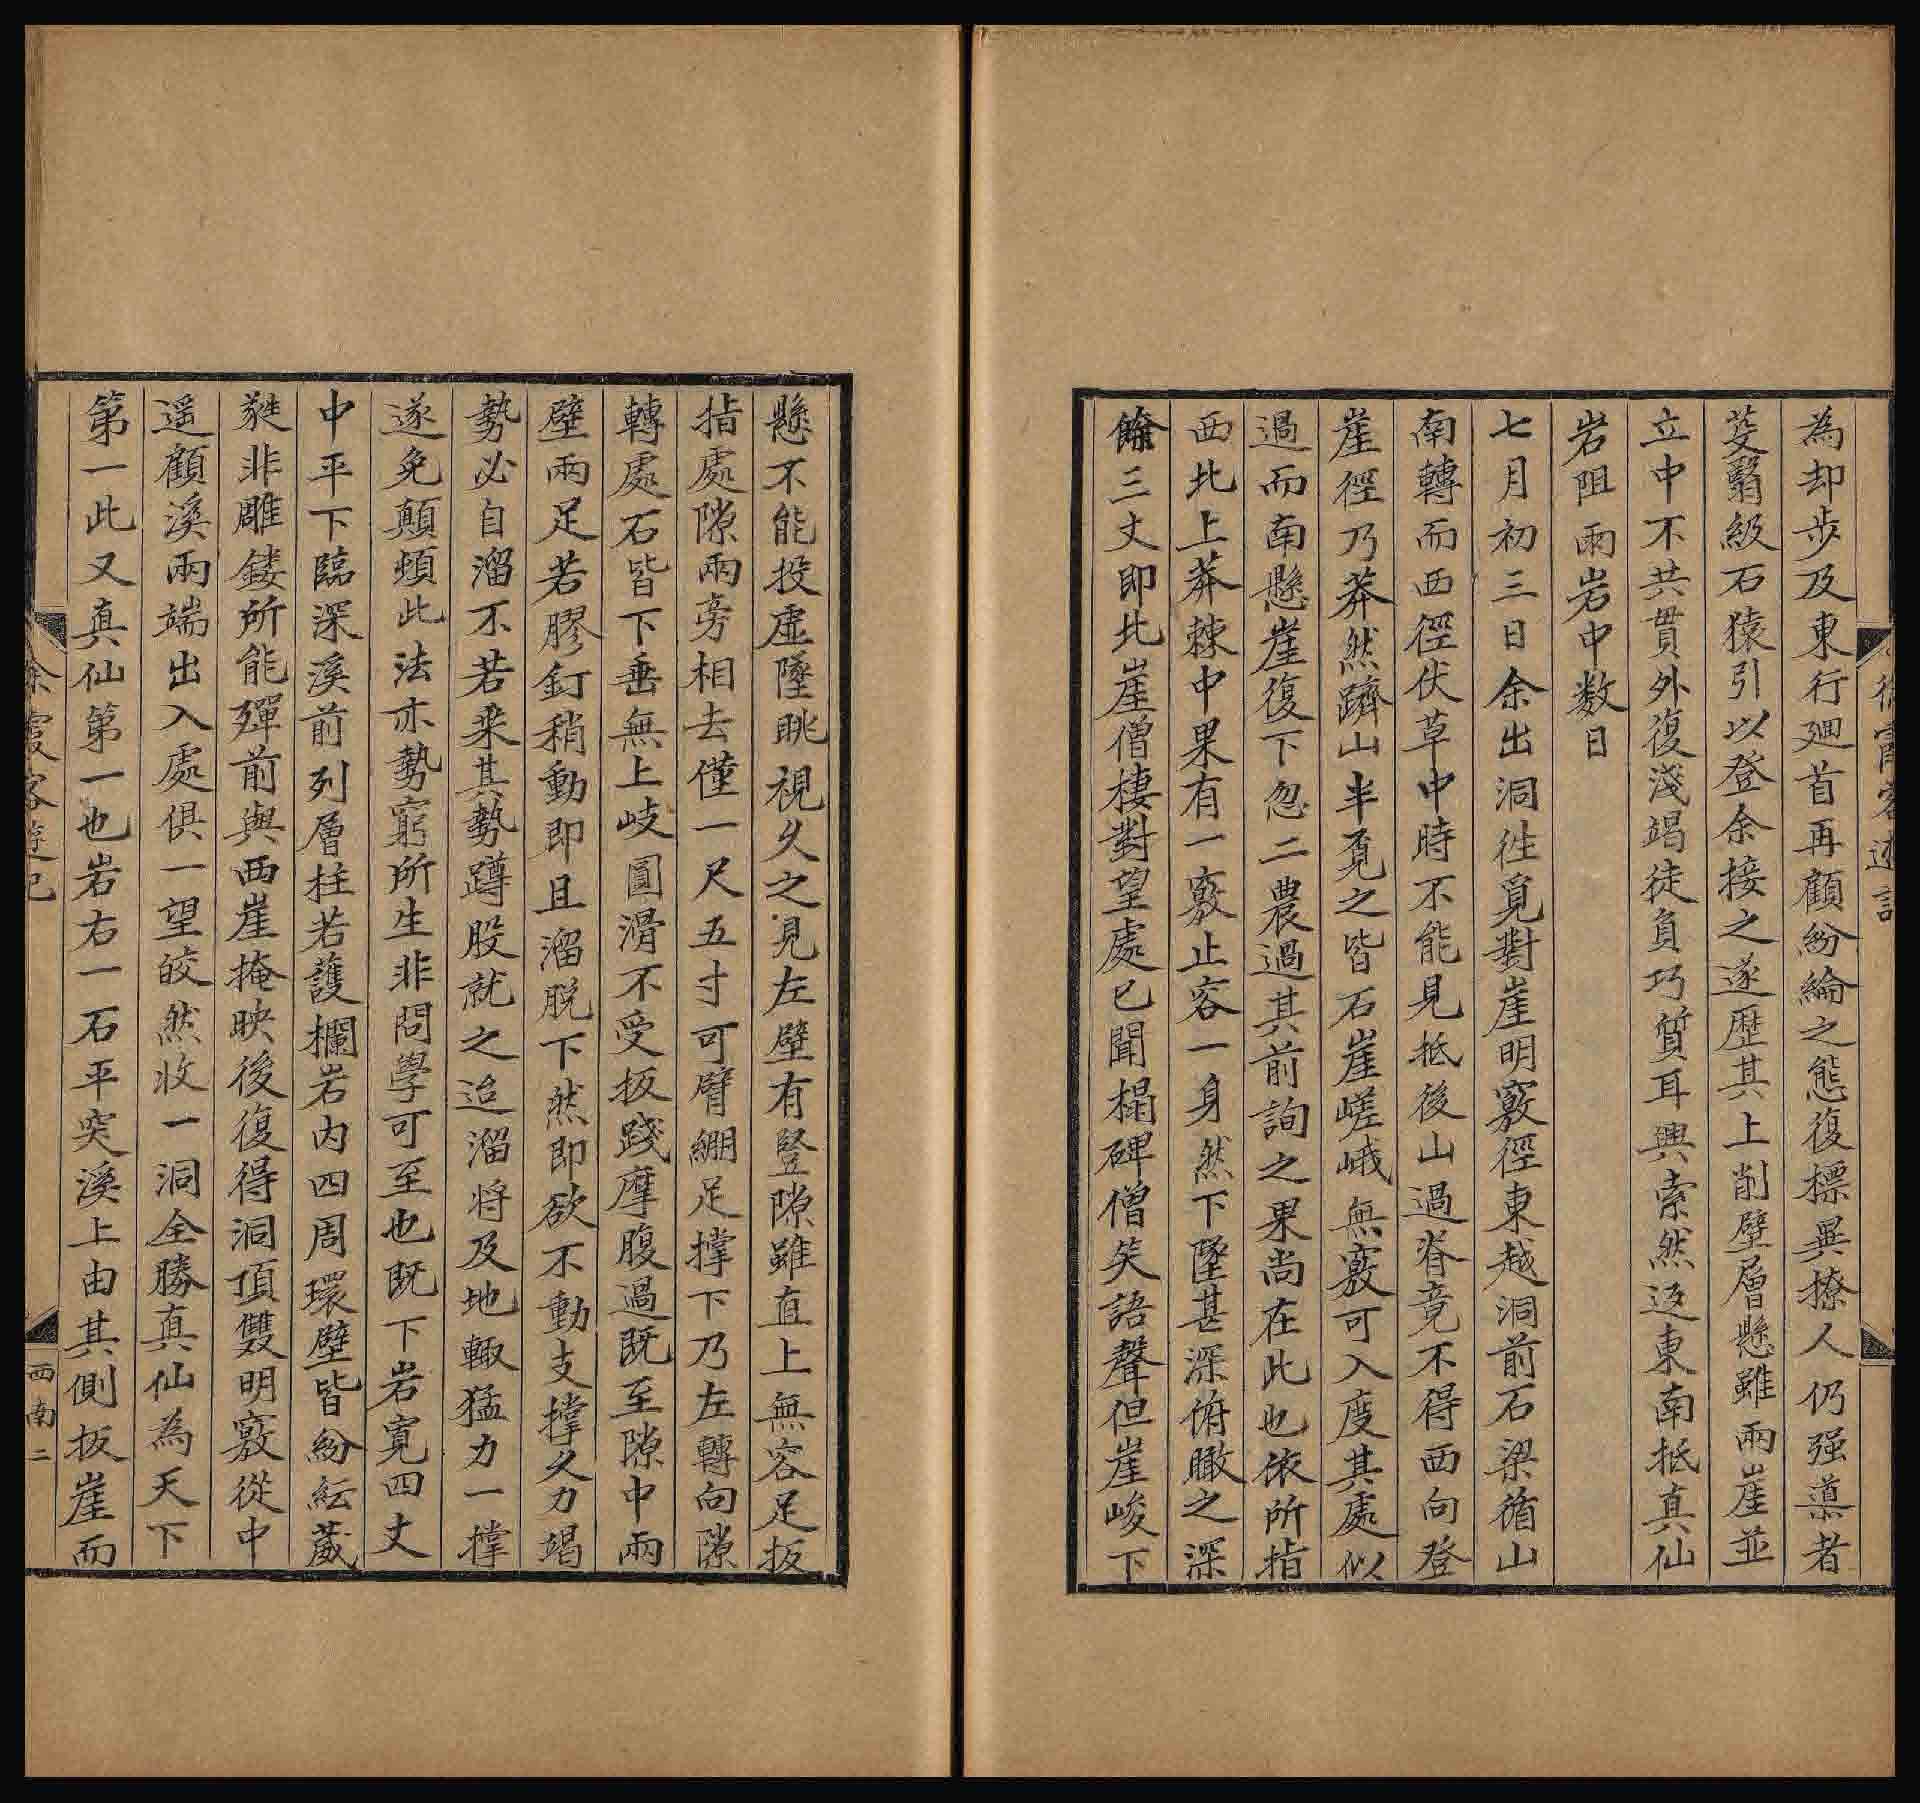 徐霞客遊記
為却步及東行廻首再顧紛綸之態復標異撩人仍强導者
芟翳級石猿引以登余接之遂歷其上削壁層懸雖兩崖並
立中不共貫外復淺竭徒負巧質耳興索然返東南抵真仙
岩阻雨岩中数日
七月初三日余出洞徃覓對崖明竅徑東越洞前石梁循山
南轉而西徑伏草中時不能見抵後山過脊竟不得西向登
崖徑乃莽然躋山半覔之皆石崖嵯峨無竅可入度其處似
過而南懸崖復下忽二農過其前詢之果尚在此也依所指
西北上莽棘中果有一竅止容一身然下墜甚深俯瞰之深
餘三丈即北崖僧棲對望處已聞榻碑僧笑語聲但崖峻下
懸不能投虛墜眺視久之見左壁有豎隙雖直上無容足扳
指處隙兩旁相去僅一尺五寸可臂綳足撑下乃左轉向隙
轉處石皆下垂無上岐圓滑不受扳踐摩腹過既至隙中兩
壁兩足若膠釘稍動即且溜脫下然即欲不動支撑久力竭
勢必自溜不若乗其勢蹲股就之迨溜将及地輙猛力一撑
遂免顛頓此法亦勢窮所生非問學可至也既下岩寛四丈
中平下臨深溪前列層柱若護欄岩内四周環壁皆紛紜葳
蕤非雕鏤所能殫前與西崖掩映後復得洞頂雙明竅從中
遥顧溪兩端出入處俱一望皎然收一洞全勝真仙為天下
第一此又真仙第一也岩右一石平突溪上由其側扳崖而
徐霞客遊記
西南二